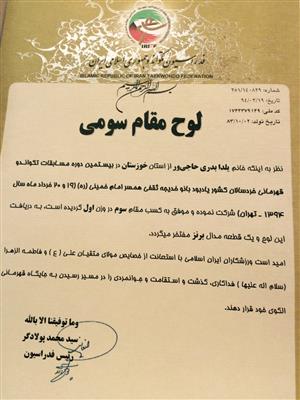 IRI.TF
فدراسیون تکواندو جمهوری اسلامی ایران
ISLAMIC REPUBLIC OF IRAN TAEKWONDO FEDERATION
بسم الله الرحمن الرحیم
شماره: ۲۵۱/۱۴۰۸۲۹
تاریخ: ۹۴/۰۳/۱۹
کد ملی: ۱۷۴۳۳۷۹۱۴۹
تاریخ تولد: ۸۳/۱۰/۰۲
لوح مقام سومی
نظر به اینکه خانم یلدا بدری حاجی‌ور از استان خوزستان در بیستمین دوره مسابقات تکواندو
قهرمانی خردسالان کشور یادبود بانو خدیجه ثقفی همسر امام خمینی (ره) (۱۹ و ۲۰ خرداد ماه سال
۱۳۹۴ - تهران) شرکت نموده و موفق به کسب مقام سوم در وزن اول گردیده است، به دریافت
این لوح و یک قطعه مدال برنز مفتخر میگردد.
امید است ورزشکاران ایران اسلامی با استعانت از خصایص مولای متقیان علی (ع) و فاطمه الزهرا
(سلام اله علیها) فداکاری، گذشت و استقامت و جوانمردی را در مسیر رسیدن به جایگاه قهرمانی
الگوی خود قرار دهند.
وما توفیقنا الا بالله
سید محمد پولادگر
رئیس فدراسیون